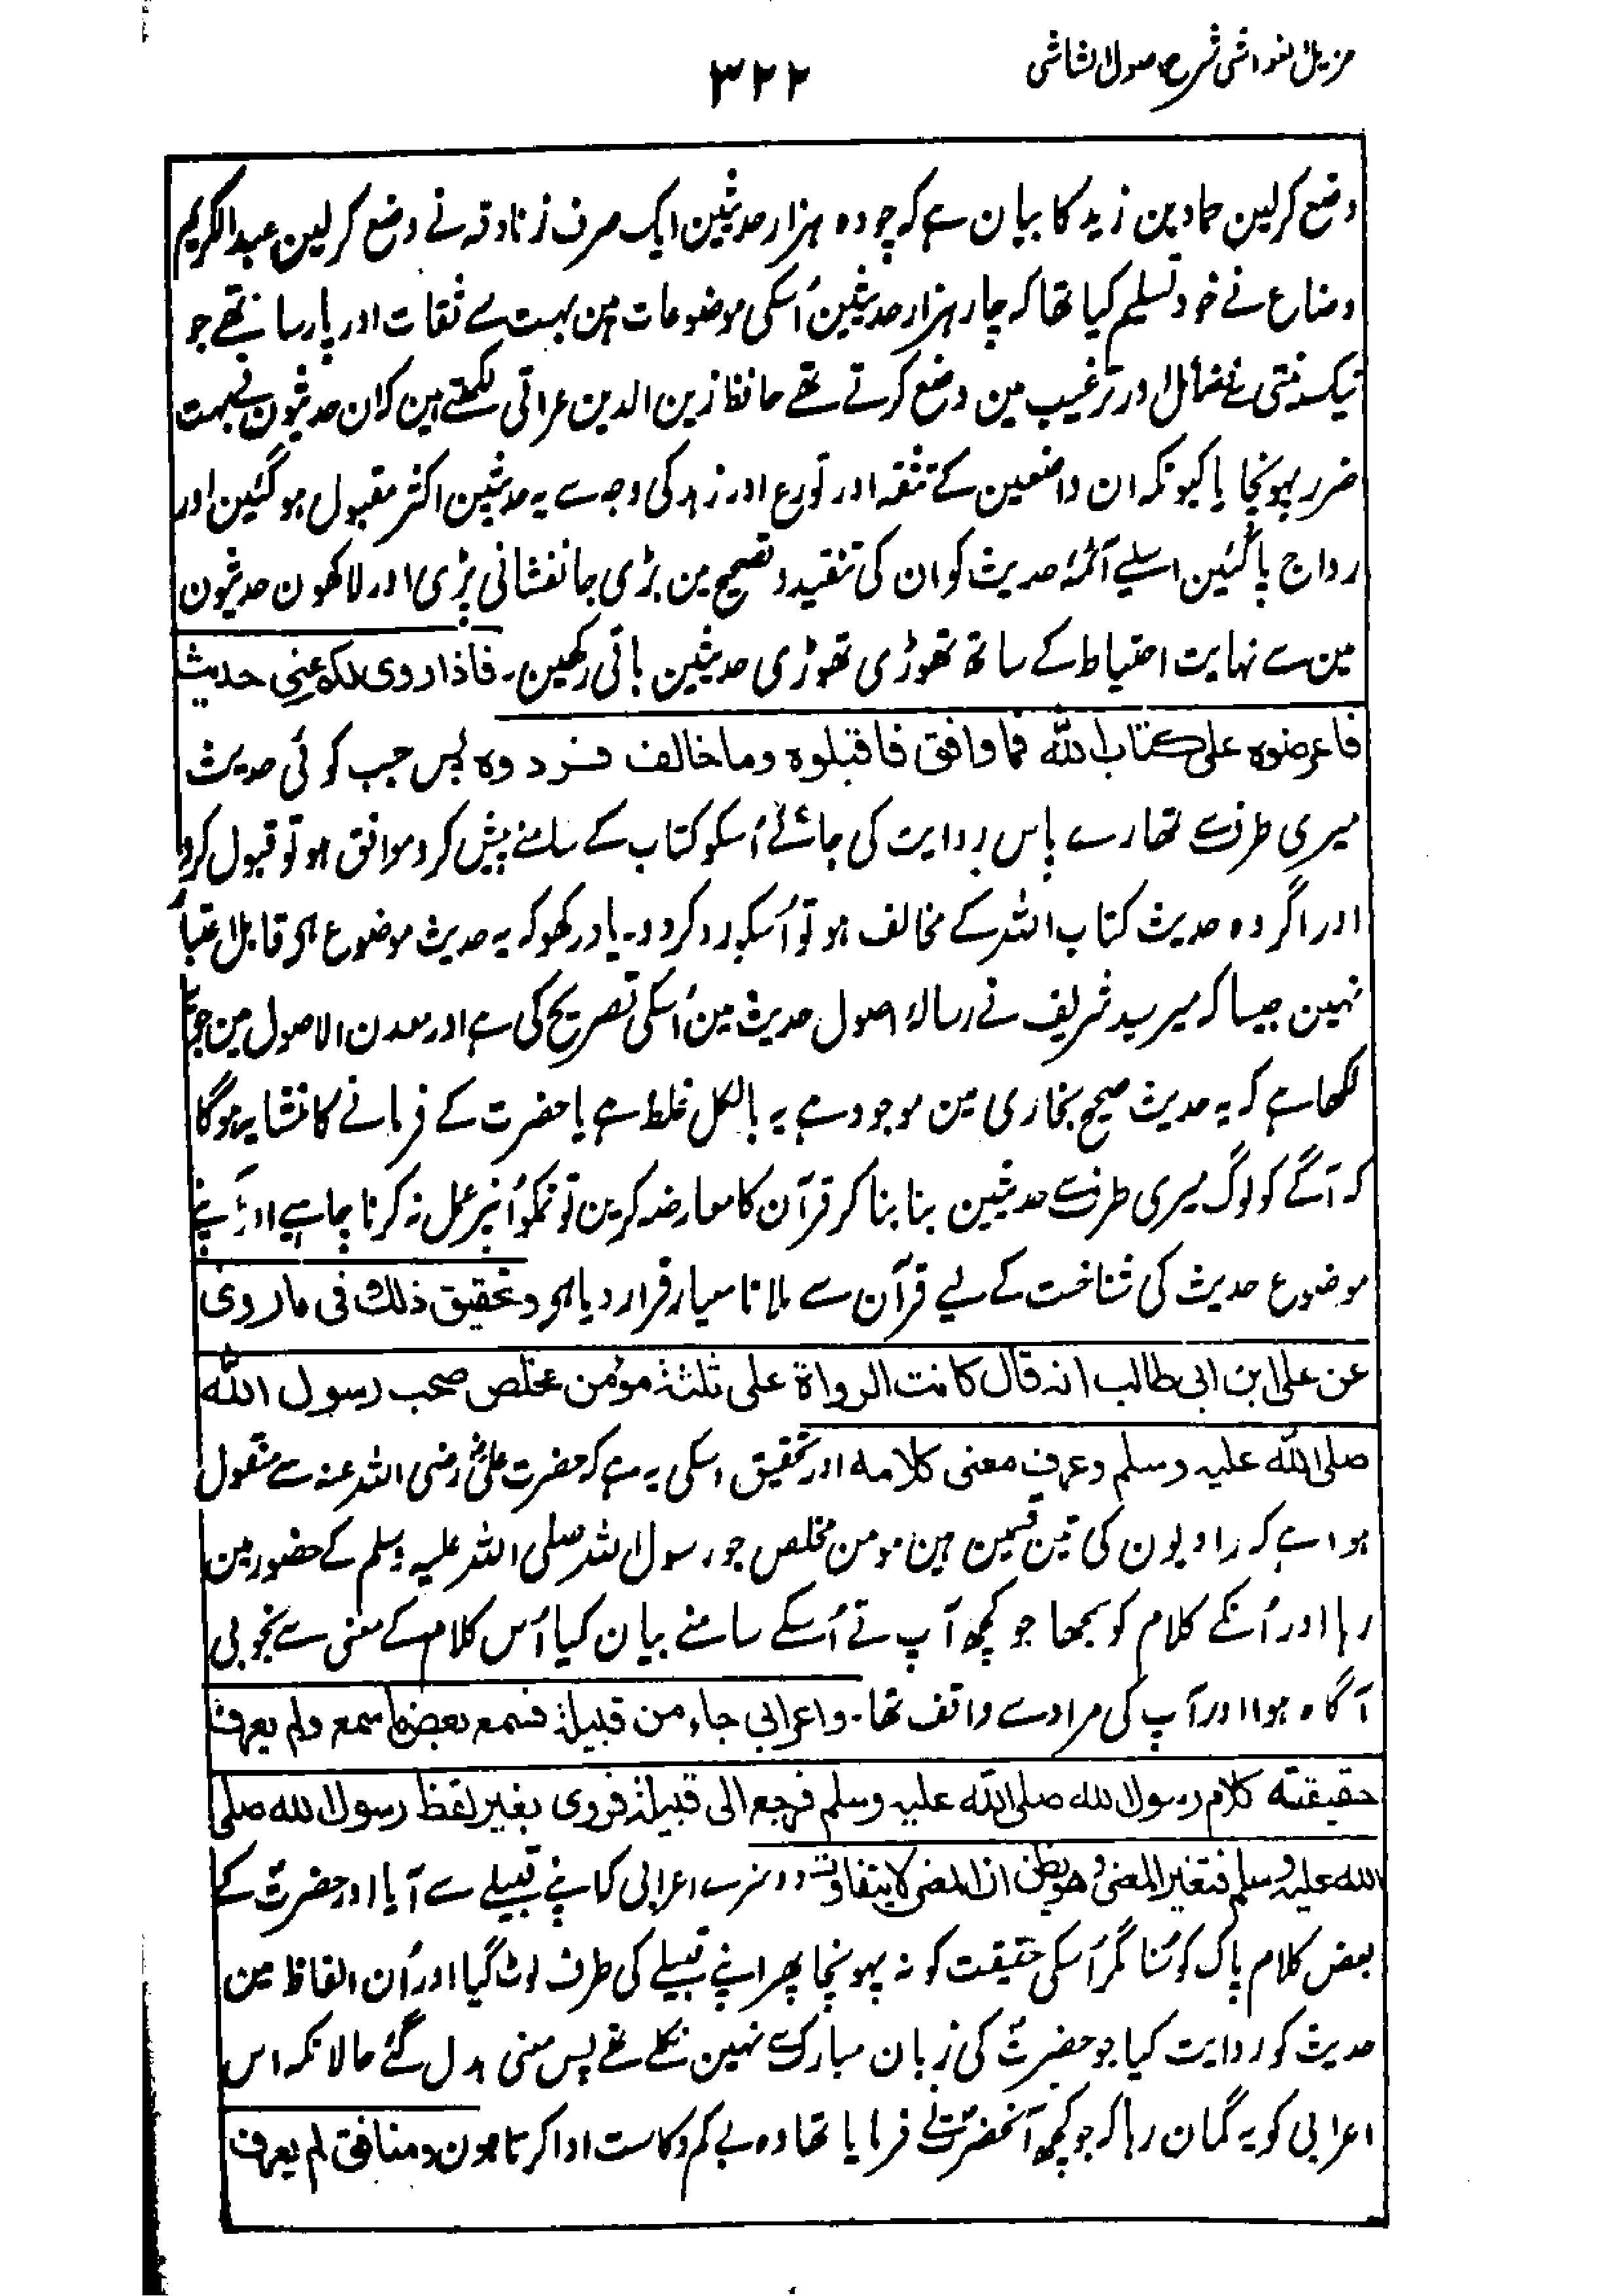 مزیل الغواشی شرح اصول الشاشی
۳۲۲
وضع کرلین حماد بن زید کا بیان ہے کہ چودہ ہزار حدیثین ایک صرف زنادقہ نے وضع کرلین عبدالکریم
وضاع نے خود تسلیم کیا تھا کہ چار ہزار حدیثین اُسکی موضوعات ہین بہت سے ثقات اور پارسا تھے جو
نیک نیتی سے فضائل اور ترغیب مین وضع کرتے تھے حافظ زین الدین عراقی لکھتے ہین کہ ان حدیثون نے بہت
ضرر پہونچایا کیونکہ ان واضعین کے ثقہ اور تورع اور زہد کی وجہ سے یہ حدیثین اکثر مقبول ہوگئین اور
رواج پاگئین اسلیے آئمۂ حدیث کو ان کی تنقید و تصحیح مین بڑی جانفشانی پڑی اور لاکھون حدیثون
مین سے نہایت احتیاط کے ساتھ تھوڑی تھوڑی حدیثین باقی رکھین۔ فاذا روی لکم عنی حدیث
فاعرضوہ علی کتاب اللہ فما وافق فاقبلوہ وما خالف فردوہ پس جب کوئی حدیث
میری طرف سے تمھارے پاس روایت کی جائے اُسکو کتاب کے سامنے پیش کرو موافق ہو تو قبول کرو
اور اگر وہ حدیث کتاب اللہ کے مخالف ہو تو اُسکو رد کردو۔ یاد رکھو کہ یہ حدیث موضوع ہو قابل اعتبار
نہین جیسا کہ میر سید شریف نے رسالۂ اصول حدیث مین اُسکی تصریح کی ہے اور معدن الاصول مین جو
لکھا ہے کہ یہ حدیث صحیح بخاری مین موجود ہے یہ بالکل غلط ہے یا حضرت کے فرمانے کا منشا یہ ہوگا
کہ آگے کو لوگ میری طرف سے حدیثین بنا بنا کر قرآن کا معارضہ کرین تو تمکو اُنپر عمل نہ کرنا چاہیے اور آپنے
موضوع حدیث کی شناخت کے لیے قرآن سے ملانا معیار قرار دیا ہو وتحقیق ذلک فی ما روی
عن علی ابن ابی طالب انہ قال کانت الرواۃ علی ثلثۃ مؤمن مخلص صحب رسول اللہ
صلی اللہ علیہ وسلم وعرف معنی کلامہ اور تحقیق اسکی یہ ہے کہ حضرت علیؓ رضی اللہ عنہ سے منقول
ہوا ہے کہ راویون کی تین قسمین ہین مومن مخلص جو رسول اللہ صلی اللہ علیہ وسلم کے حضور مین
رہا اور اُنکے کلام کو سمجھا جو کچھ آپ نے اُسکے سامنے بیان کیا اُس کلام کے معنی سے بخوبی
آگاہ ہوا اور آپ کی مراد سے واقف تھا۔ واعرابی جاء من قبیلۃ فسمع بعض ما سمع ولم یعرف
حقیقتہ کلام رسول اللہ صلی اللہ علیہ وسلم فرجع الی قبیلتہ فروی بغیر لفظ رسول اللہ صلی
اللہ علیہ وسلم فتغیر المعنی وھو یظن ان المعنی لا یتفاوت دوسرے اعرابی کہ اپنے قبیلے سے آیا اور حضرتؐ کے
بعض کلام پاک کو سُنا مگر اُسکی حقیقت کو نہ پہونچا پھر اپنے قبیلے کی طرف لوٹ گیا اور اُن الفاظ مین
حدیث کو روایت کیا جو حضرتؐ کی زبان مبارک سے نہین نکلے تھے پس معنی بدل گئے حالانکہ اس
اعرابی کو یہ گمان رہا کہ جو کچھ آنحضرتؐ نے فرمایا تھا وہ بے کم و کاست ادا کرتا ہون ومنافق لم یعرف